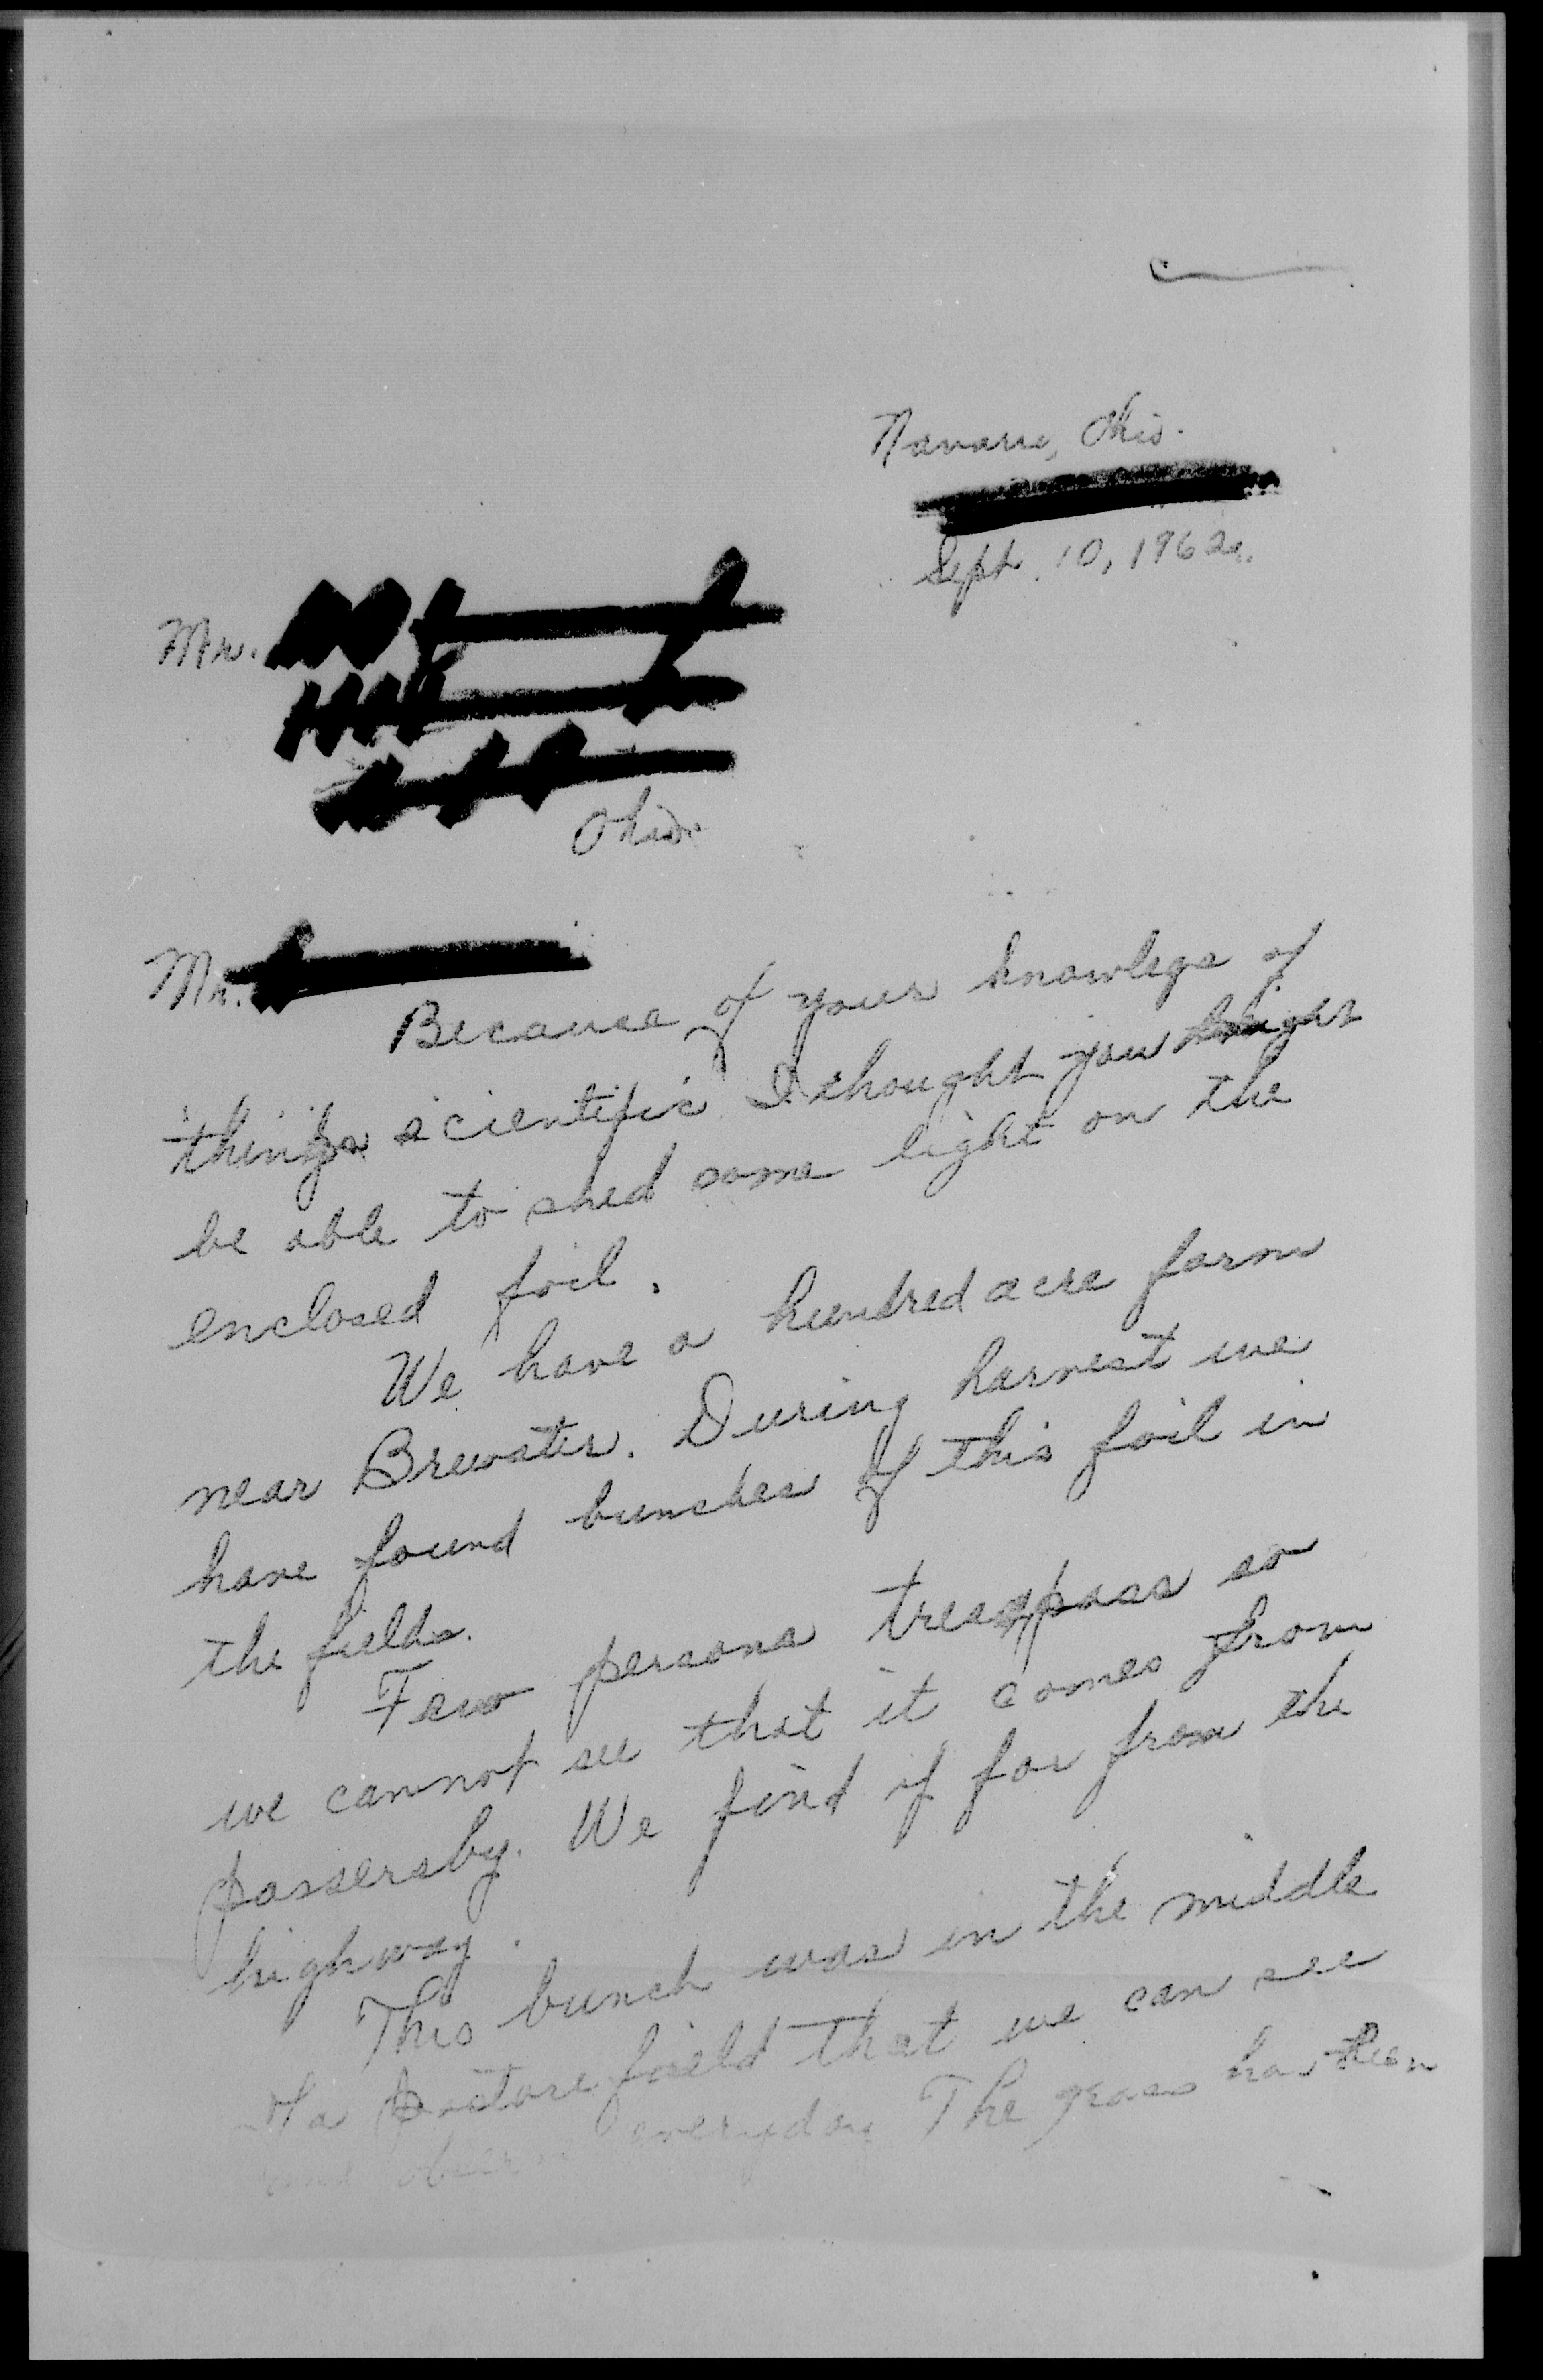 Navarre, Ohio.
Sept. 10, 1962.
Mr.
Ohio.
Mr.
Because of your knowlege of
things scientific I thought you might
be able to shed some light on the
enclosed foil.
We have a hundred acre farm
near Brewster. During harvest we
have found bunches of this foil in
the fields.
Few persons tresspass so
we cannot see that it comes from
passersby. We find if far from the
highway.
This bunch was in the middle
of a pasture field that we can see
and observe everyday The grass has been